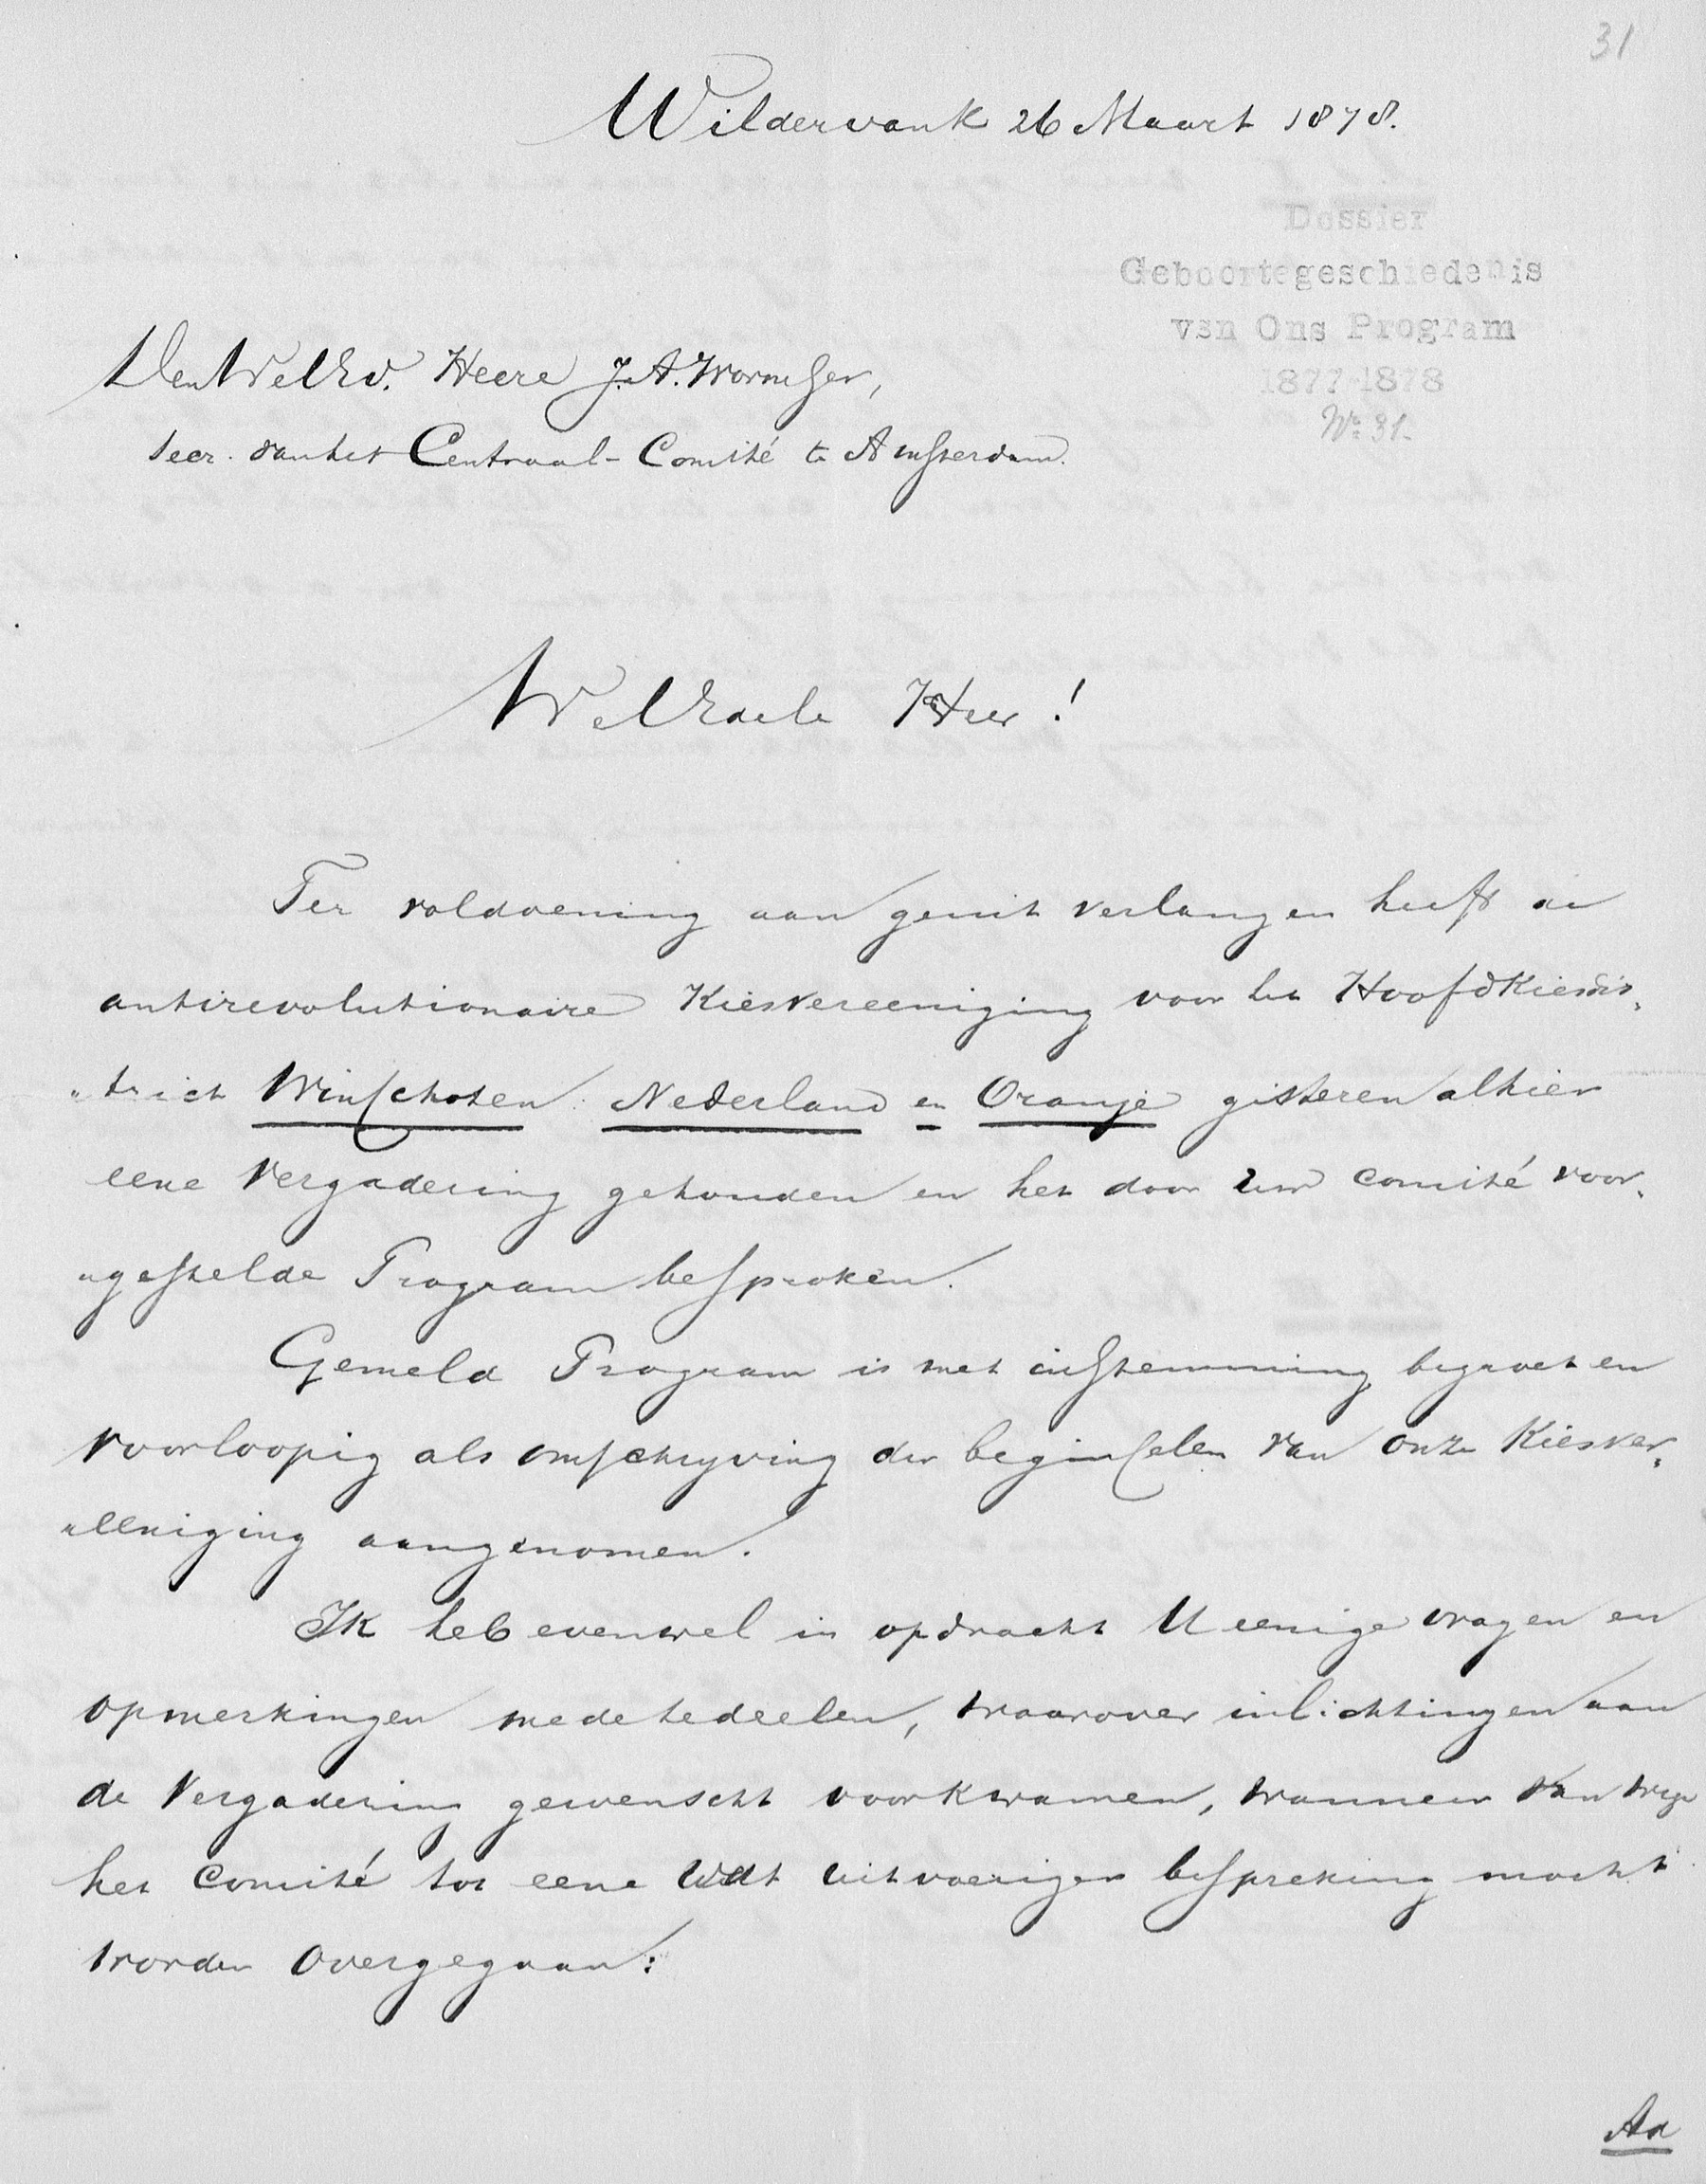 31
Wildervank 26 Maart 1878.
Dossier
Geboortegeschiedenis
van Ons Program
1877-1878
No 31.
Den WelEd. Heere J.A. Wormser,
Secr. van het Centraal-Comité te Amsterdam.
WelEdele Heer!
Ter voldoening aan geuit verlangen heeft de
antirevolutionaire Kiesvereeniging voor het Hoofdkiesdis„
„trict Winschoten: Nederland en Oranje gisteren alhier
eene Vergadering gehouden en het door Uw Comité voor„
„gestelde Program besproken.
Gemeld Program is met instemming begroet en
voorloopig als omschryving der beginselen van onze Kiesver„
„eeniging aangenomen.
Ik heb evenwel in opdracht U eenige vragen en
opmerkingen medetedeelen, waarover inlichtingen aan
de Vergadering gewenscht voorkwamen, wanneer van wege
het Comité tot eene wat uitvoeriger bespreking mocht
worden overgegaan:
Ad